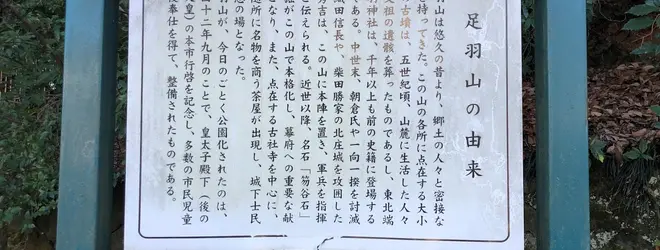 足羽山の由来
羽山は悠久の昔より、郷土の人々と密接な
持ってきた。この山の各所に点在する大小
古墳は、五世紀頃、山麓に生活した人々
祖の遺骸を葬ったものであるし、東北端
神社は、千年以上も前の史籍に登場する
である。中世末、朝倉氏や一向一揆を討滅
織田信長や、柴田勝家の北庄城を攻囲した
秀吉は、この山に本陣を置き、軍兵を指揮
と伝えられる。近世以降、名石「笏谷石」
掘がこの山で本格化し、幕府への重要な献
となり、また、点在する古社寺を中心に、
随所に名物を商う茶屋が出現し、城下士民
の場となった。
山が、今日のごとく公園化されたのは、
十二年九月のことで、皇太子殿下（後の
天皇）の本市行啓を記念し、多数の市民児童
奉仕を得て、整備されたものである。